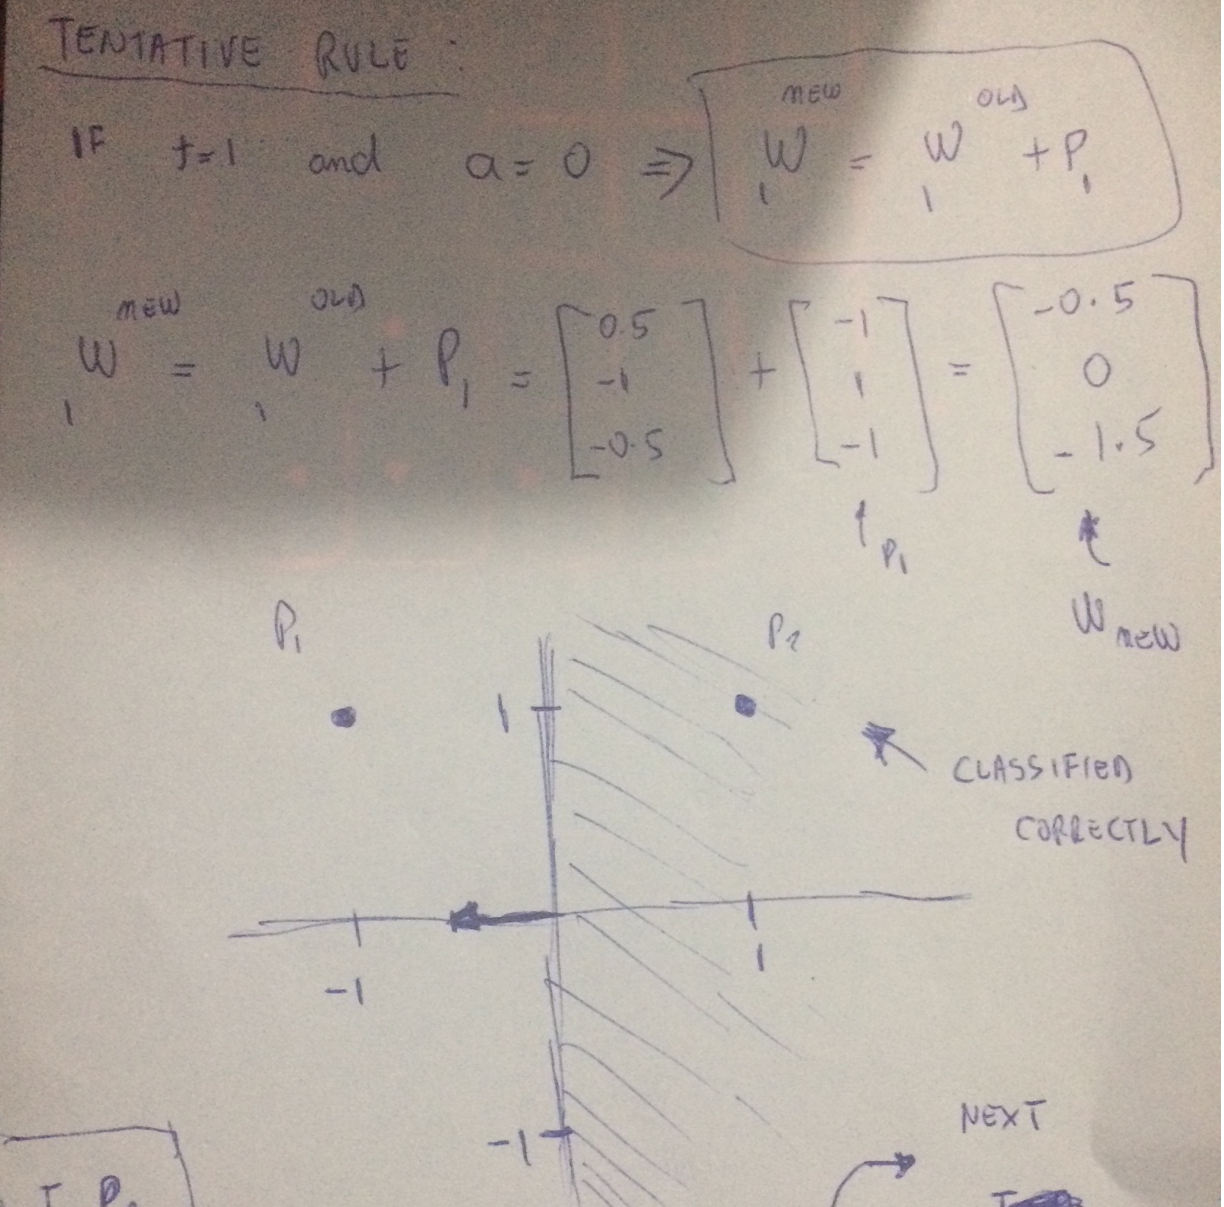 TENTATIVE RULE :
IF t=1 and a=0 ⇒ ₁W^NEW = ₁W^OLD + P₁
₁W^NEW = ₁W^OLD + P₁ = [0.5 -1 -0.5] + [-1 1 -1] = [-0.5 0 -1.5]
↑ P₁
W NEW
P₁ P₂
1
CLASSIFIED
CORRECTLY
-1 1
-1
NEXT